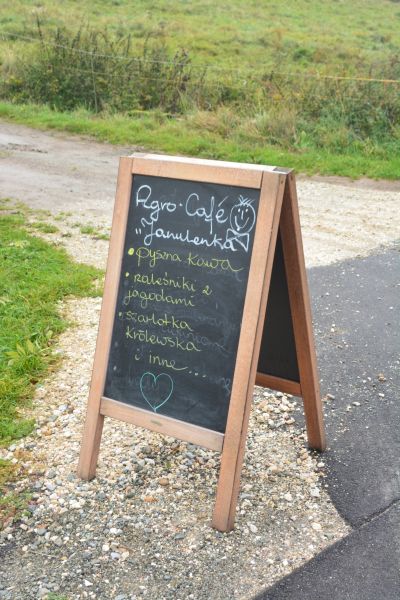 Agro-Café
„Janulenka"
• pyszna kawa
• naleśniki z
jagodami
• szarlotka
królewska
i inne...